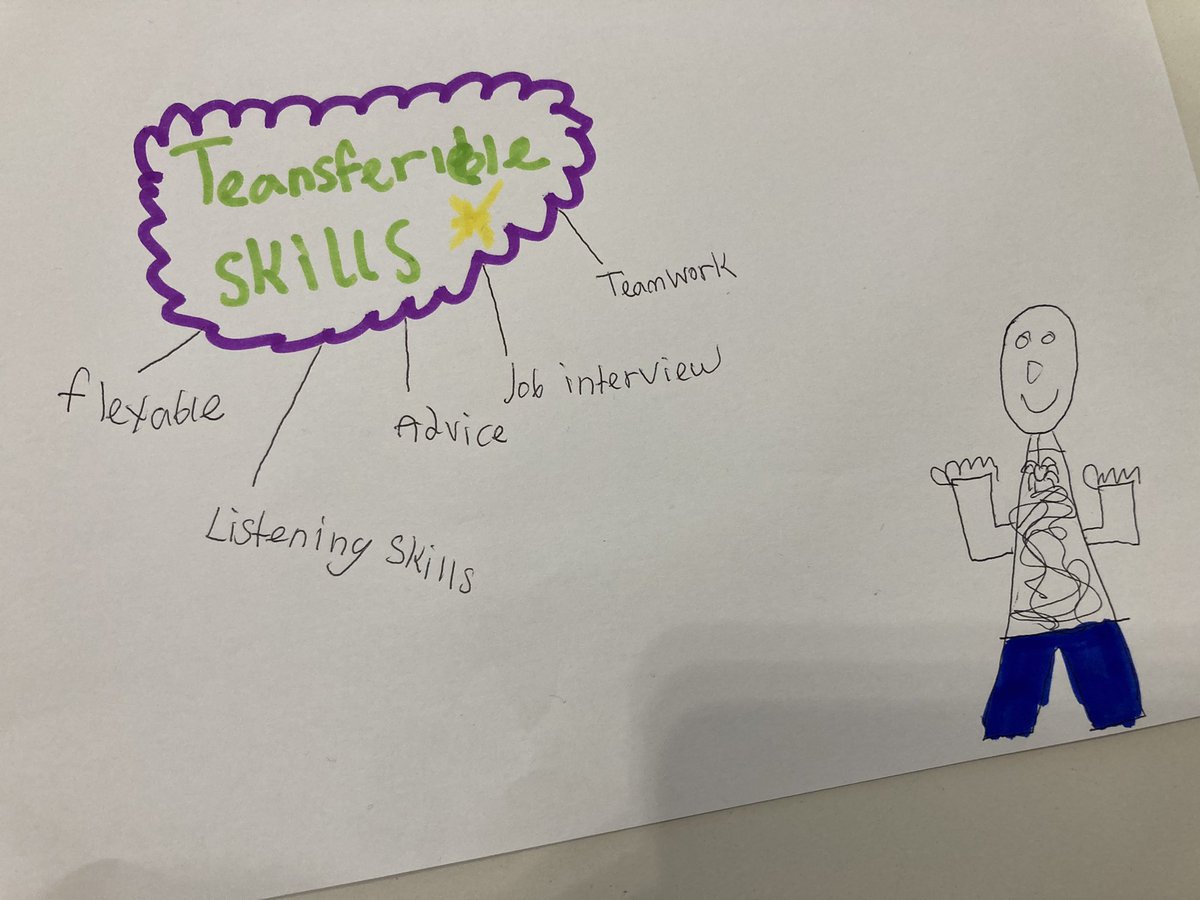 Teansferible
skills
Teamwork
Job interview
Advice
flexable
Listening skills